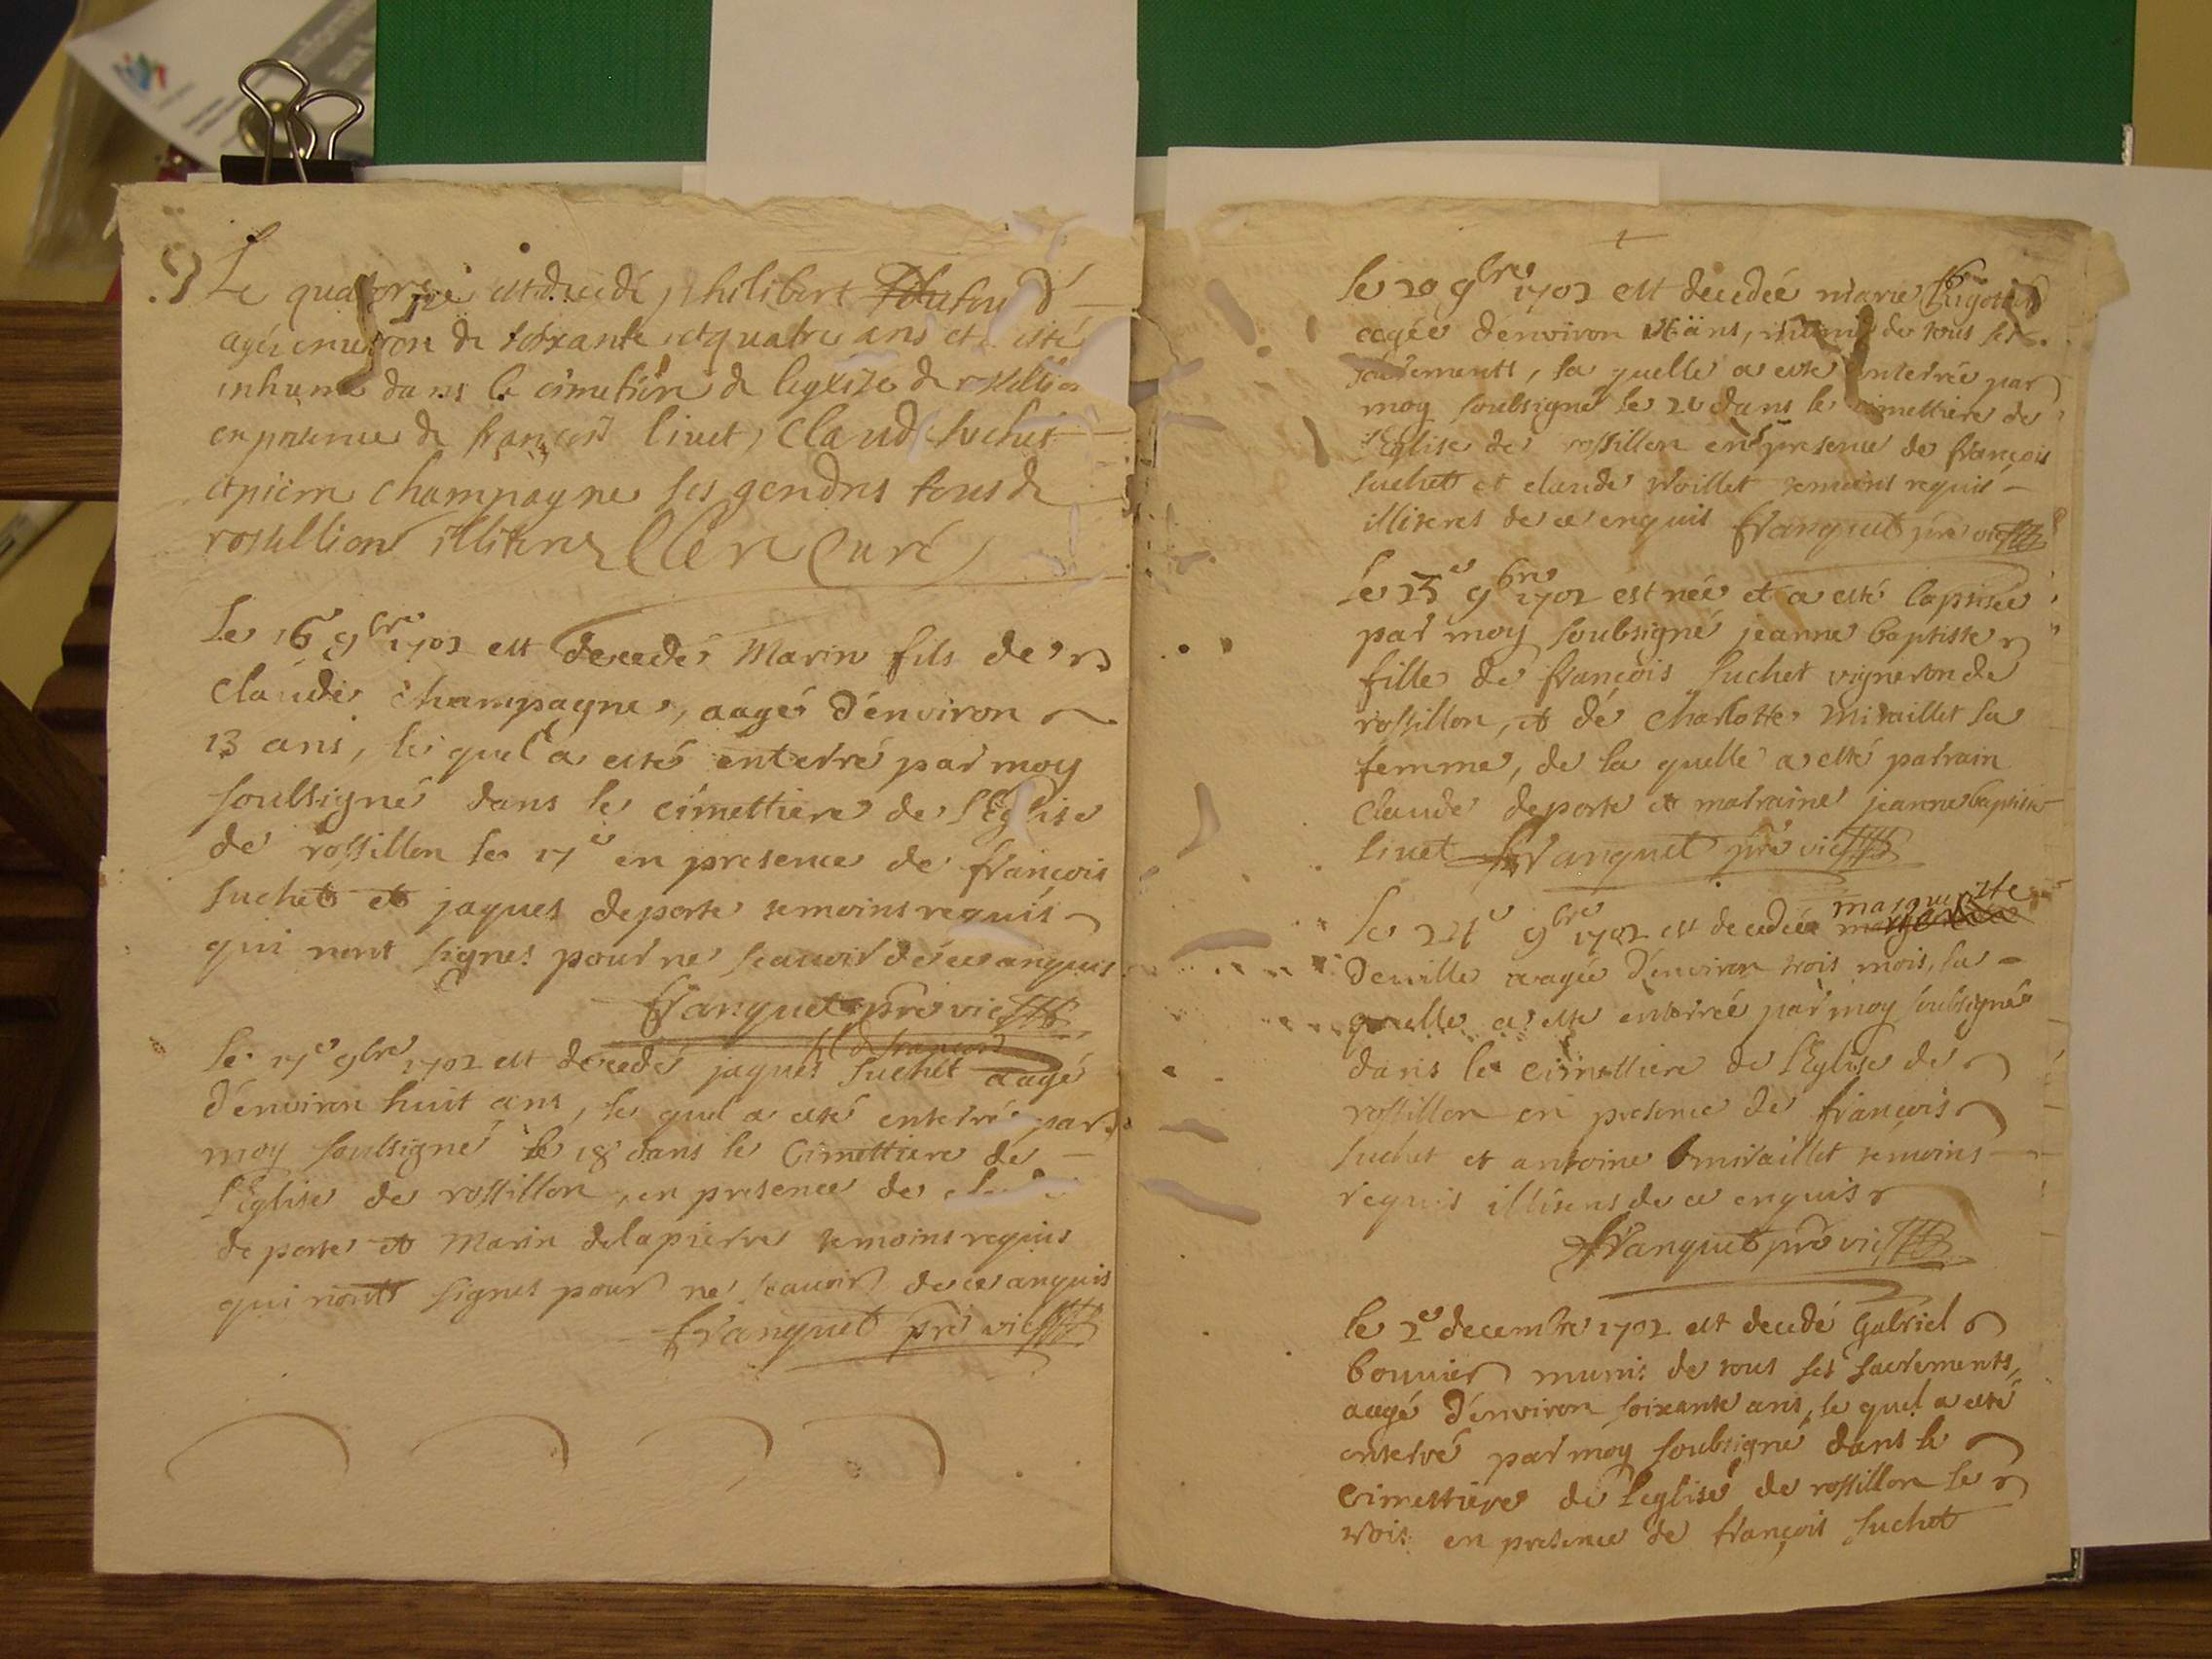 Le quatorzie est decedé philibert
agé environ de soixante et quatre ans et a esté
inhumé dans le cimetiere de leglise de rossillion
en presence de françois liuet, Claude suchet
et pierre champagne ses gendres tous de
rossillion illiteres Clerc Curé
Le 16e 9bre 1702 est decedé Marin fils de
Claude champagne, aagé d'environ
13 ans, le quel a esté enterré par moy
soubsigné dans le cimettiere de l'Eglise
de rossillon le 17e en presence de françois
suchet et jaques deporte temoins requis
qui nont signes pour ne scauoir de ce anquis
franquet pre vic
fil de françois
Le 17e 9bre 1702 est decedé jaques suchet aagé
d'environ huit ans, le quel a esté enterré par
moy soubsigné le 18 dans le Cimettiere de
l'Eglise de rossillon, en presence de claude
deporte et Marin delapierre temoins requis
qui nont signes pour ne scauoir de ce anquis
franquet pre vic
le 20 9bre 1702 est decedée marie
aagée d'environ ans, munie de tous les
sacrements, la quelle a esté enterrée par
moy soubsigné le dans le cimettiere de
l'Eglise de rossillon en presence de françois
suchet et claude temoins requis
illiteres de ce enquis franquet pre vic
Le 23e 9bre 1702 est née et a esté baptisée
par moy soubsigné jeanne baptiste
fille de françois suchet vigneron de
rossillon, et de charlotte miraillet sa
femme, de la quelle a esté parrain
claude deporte et marraine jeanne baptiste
liuet franquet pre vic
marguerite
Le 24e 9bre 1702 est decedée
deville aagée d'environ trois mois, la
quelle a esté enterrée par moy soubsigné
dans le cimettiere de l'Eglise de
rossillon en presence de françois
suchet et antoine miraillet temoins
requis illiteres de ce enquis
franquet pre vic
le 2e decembre 1702 est decedé Gabriel
bouuier munis de tous ses sacrements,
aagé d'environ soixante ans, le quel a esté
enterré par moy soubsigné dans le
cimettiere de l'eglise de rossillon le
trois en presence de françois suchet